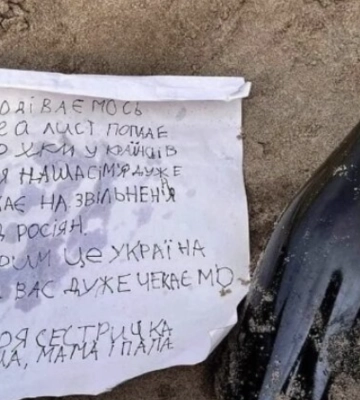 ОДІВАЄМОСЬ
ЛИСТ ПОПАДЕ
У КРАЇНСІВ
НАША СІМ'Я ДУЖЕ
КАЄ НА ЗВІЛЬНЕНЯ
РОСІЯН.
РИМ ЦЕ УКРАЇНА
ВАС ДУЖЕ ЧЕКАЄМО
ОЯ СЕСТРИЧКА
МАМА І ПАПА